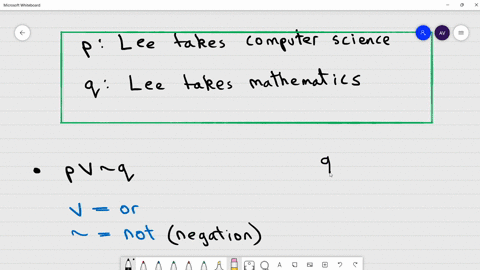 Microsoft Whiteboard
AV
p: Lee takes computer science
q: Lee takes mathematics
• p V ~ q
q
V = or
~ = not (negation)